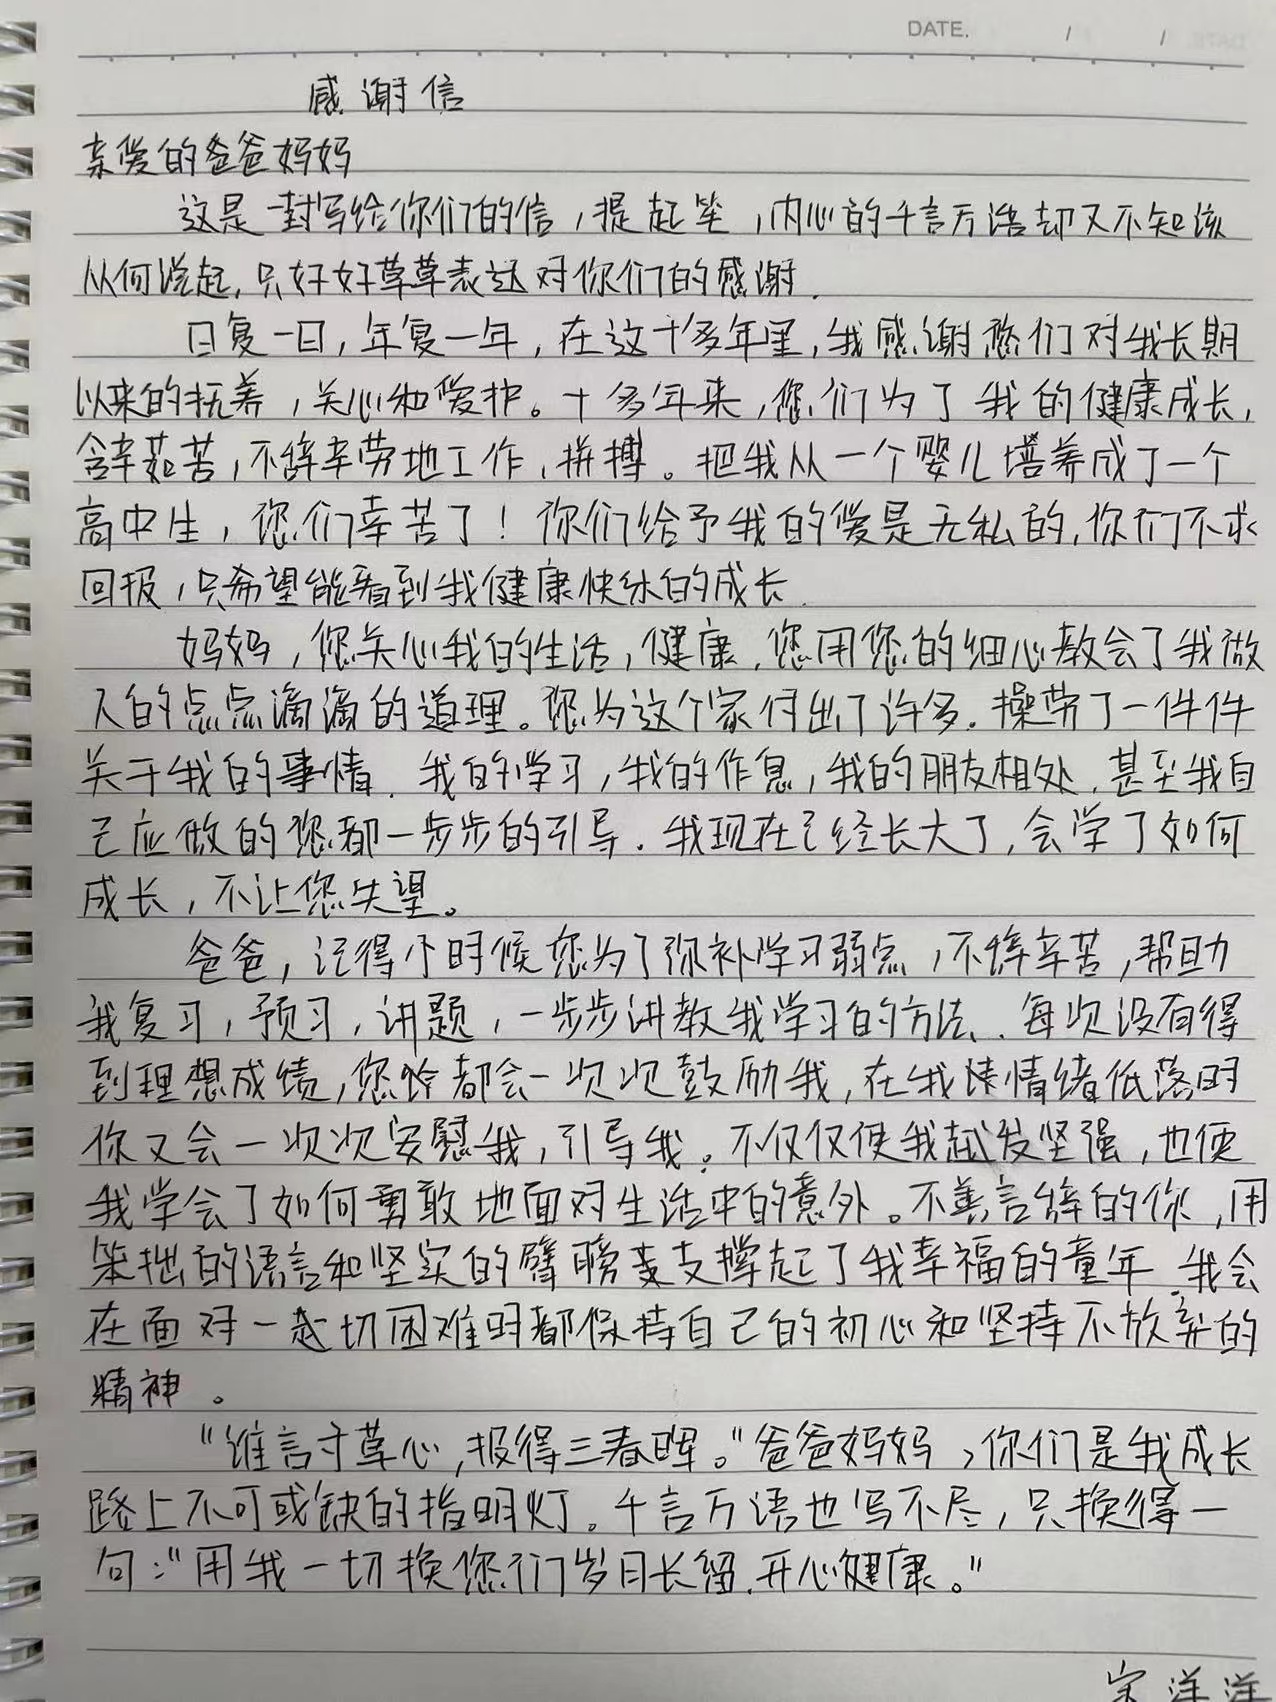 DATE. / /
感谢信
亲爱的爸爸妈妈
这是一封写给你们的信，提起笔，内心的千言万语却又不知该
从何说起，只好好草草表达对你们的感谢.
日复一日，年复一年，在这十多年里，我感谢您们对我长期
以来的抚养，关心和爱护。十多年来，您们为了我的健康成长，
含辛茹苦，不辞辛劳地工作，拼搏。把我从一个婴儿培养成了一个
高中生，您们幸苦了！你们给予我的爱是无私的，你们不求
回报，只希望能看到我健康快乐的成长.
妈妈，您关心我的生活，健康，您用您的细心教会了我做
人的点点滴滴的道理。您为这个家付出了许多.操劳了一件件
关于我的事情.我的学习，我的作息，我的朋友相处，甚至我自
己应做的您都一步步的引导.我现在已经长大了，会学了如何
成长，不让您失望。
爸爸，记得小时候您为了弥补学习弱点，不辞辛苦，帮助
我复习，预习，讲题，一步步讲教我学习的方法.每次没有得
到理想成绩，您都会一次次鼓励我，在我情绪低落时
你又会一次次安慰我，引导我。不仅仅使我越发坚强，也使
我学会了如何勇敢地面对生活中的意外。不善言辞的你，用
笨拙的语言和坚实的臂膀支撑起了我幸福的童年.我会
在面对一切困难时都保持自己的初心和坚持不放弃的
精神。
“谁言寸草心，报得三春晖。”爸爸妈妈，你们是我成长
路上不可或缺的指明灯。千言万语也写不尽，只换得一
句：“用我一切换您们岁月长留.开心健康。”
宋洋洋